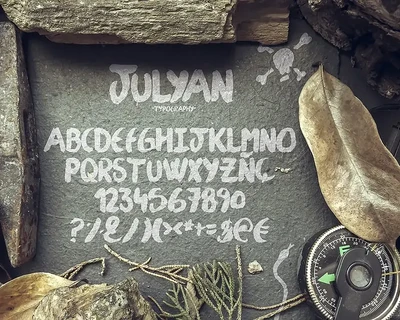 JULYAN
TYPOGRAPHY
ABCDEFGHIJKLMNO
PQRSTUWXYZÑÇ
1234567890